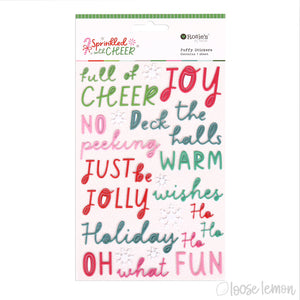 Sprinkled
with CHEER
Rosie's
Puffy Stickers
full of
CHEER
JOY
NO
peeking
Deck the
halls
JUST be
JOLLY
WARM
wishes
Ho
Ho
Ho
Holiday
OH what FUN
loose lemon